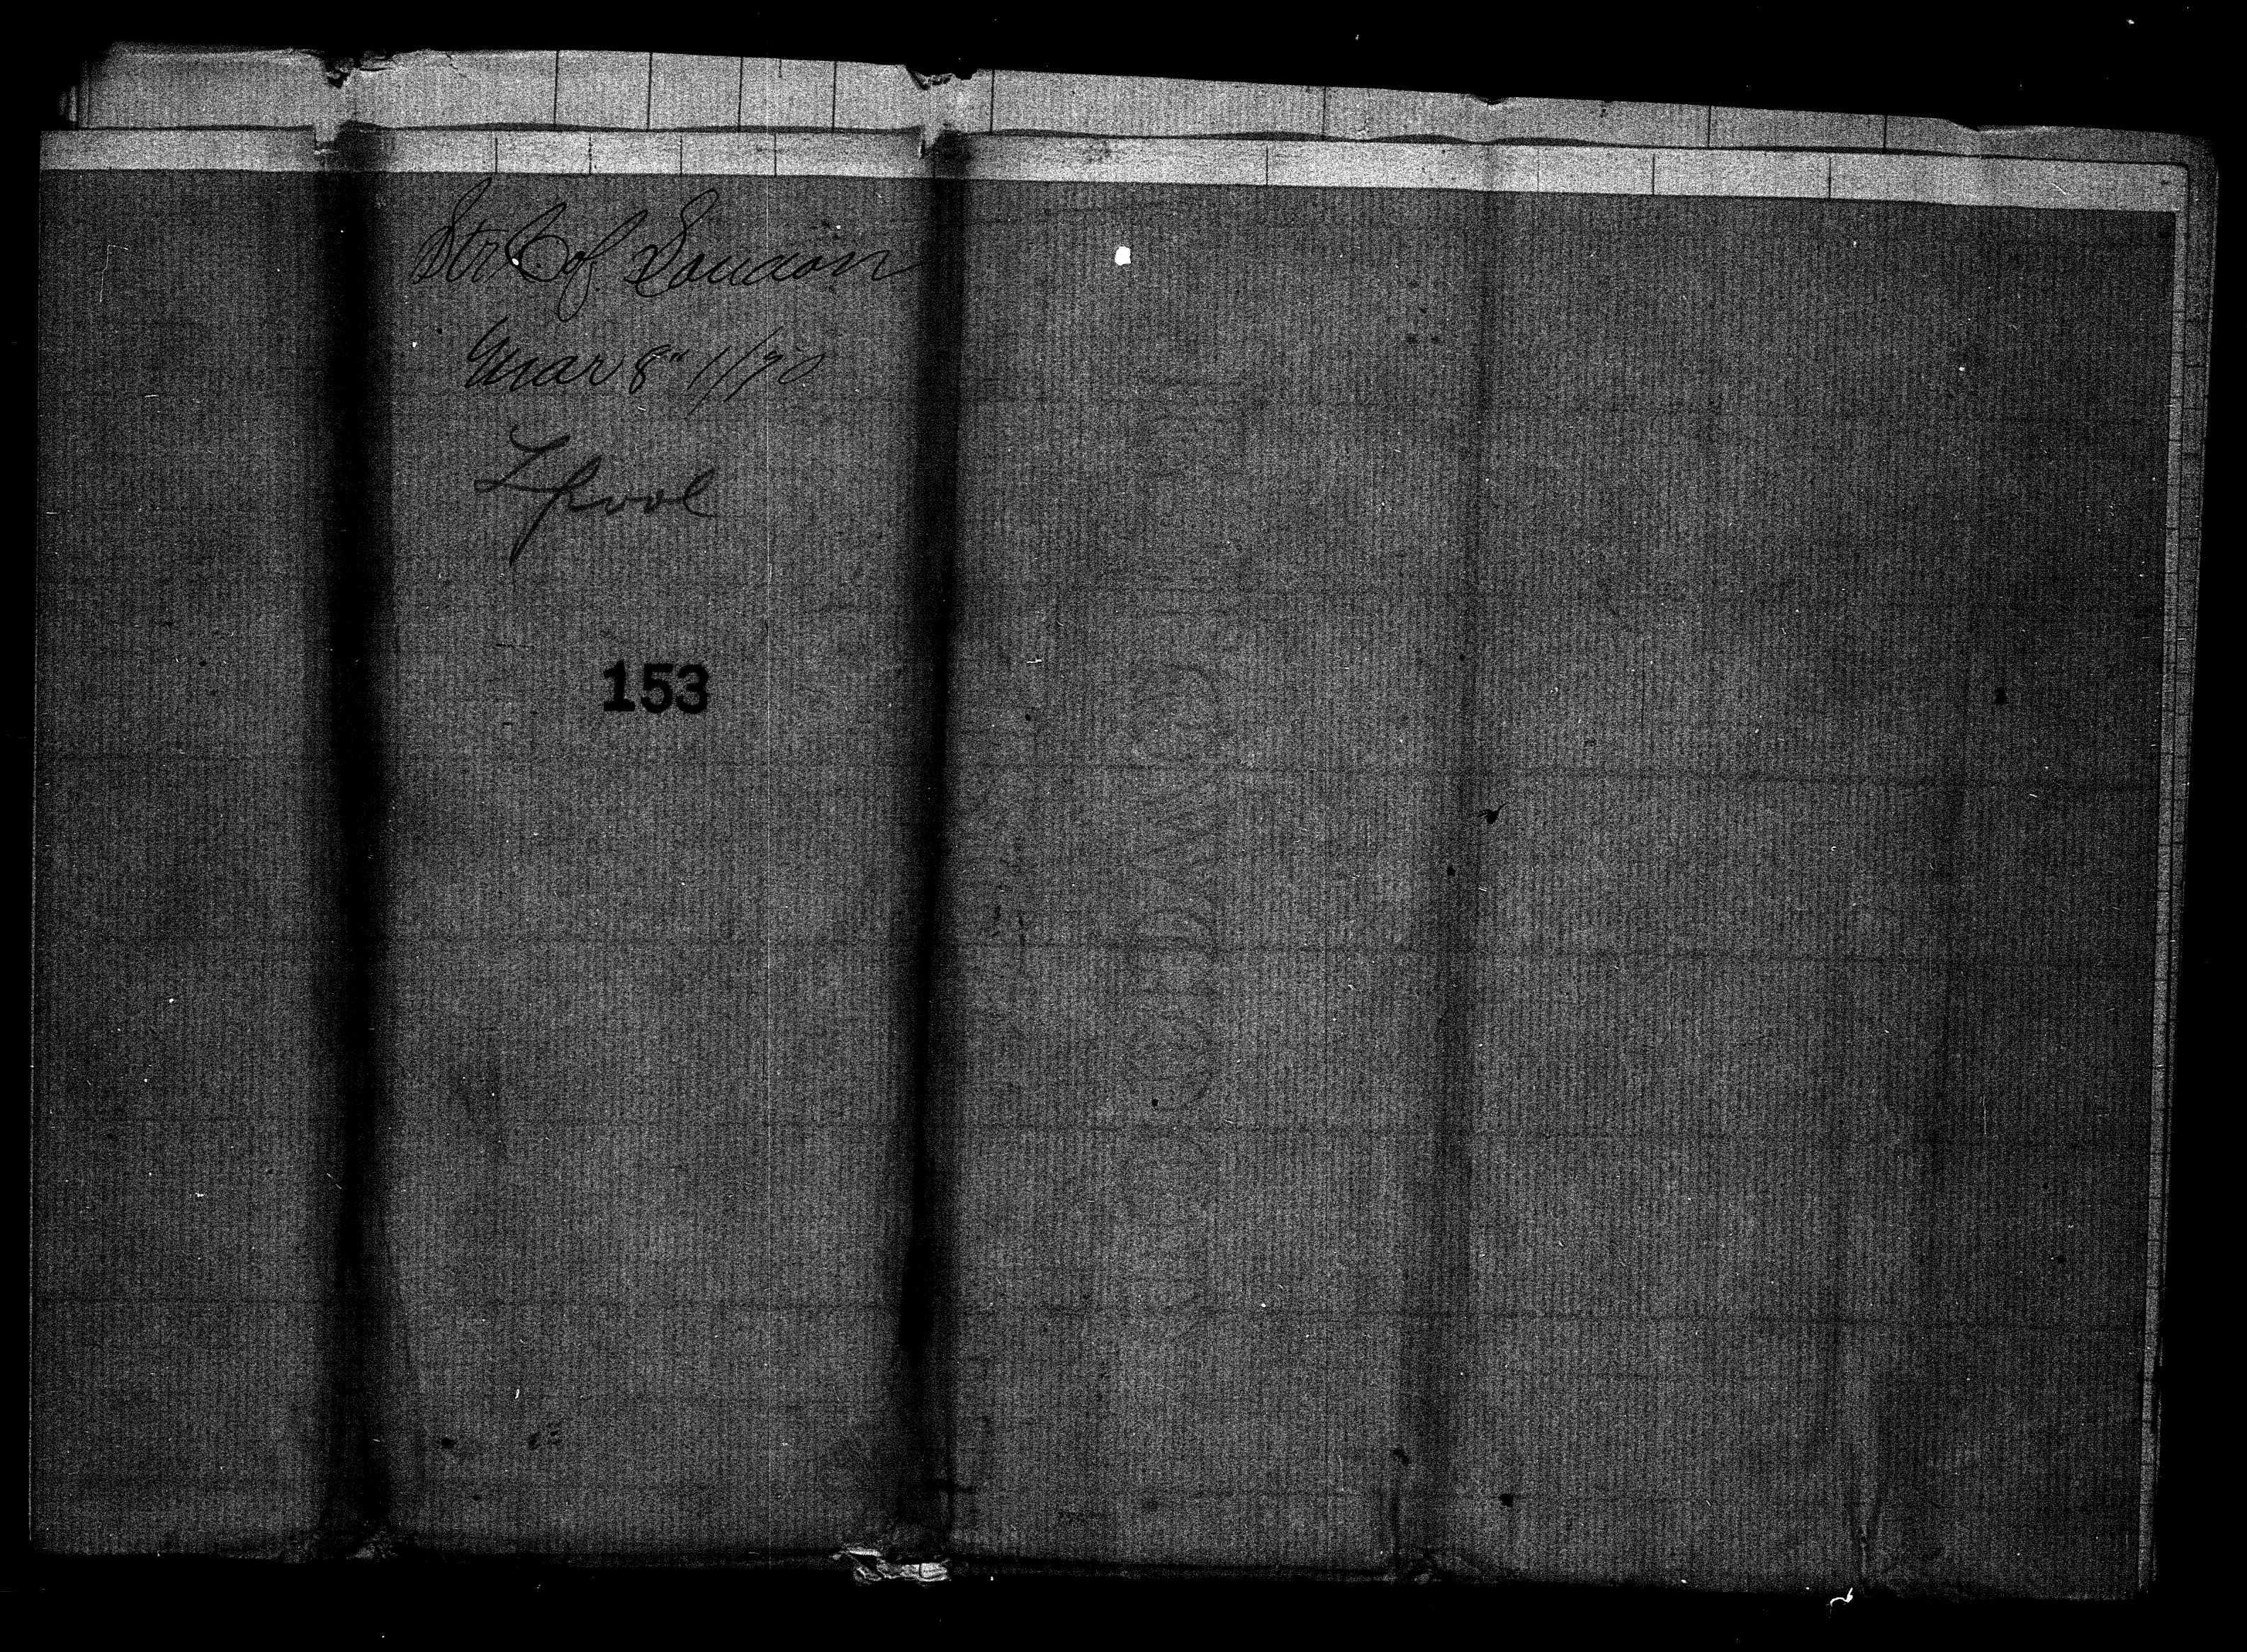 Str C of London
Mar 8" 1/70
Lpool
153